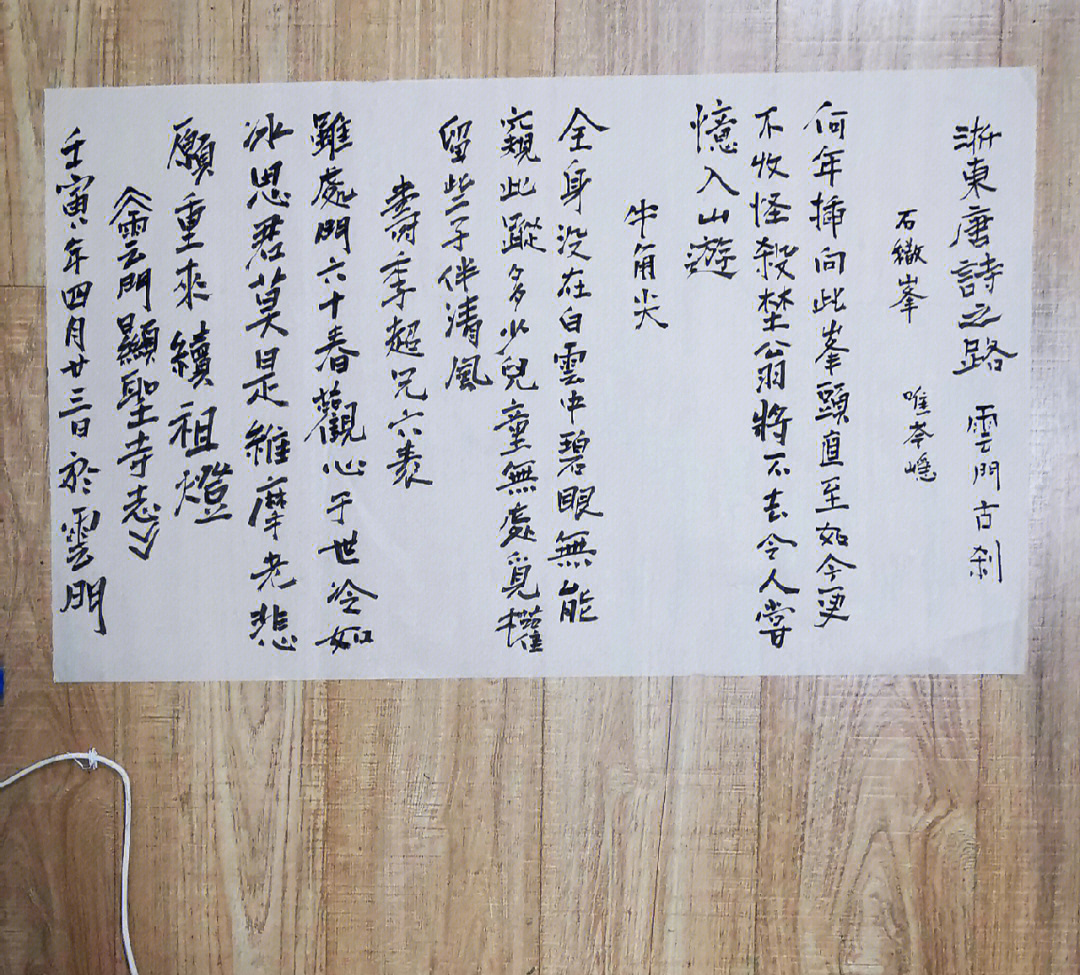 浙東唐詩之路 雲門古刹
石繖峯 唯岑嶾
何年揷向此峯頭直至如今更
不收怪殺樵公羽將不去令人嘗
憶入山遊
牛角尖
全身没在白雲中碧眼無能
窺此蹤多少兒童無處覓權
留些子伴清風
壽季超兄六袠
雖處門六十春觀心于世冷如
冰思君莫是維摩老悲
願重來續祖燈
《雲門顯聖寺志》
壬寅年四月廿三日於雲門